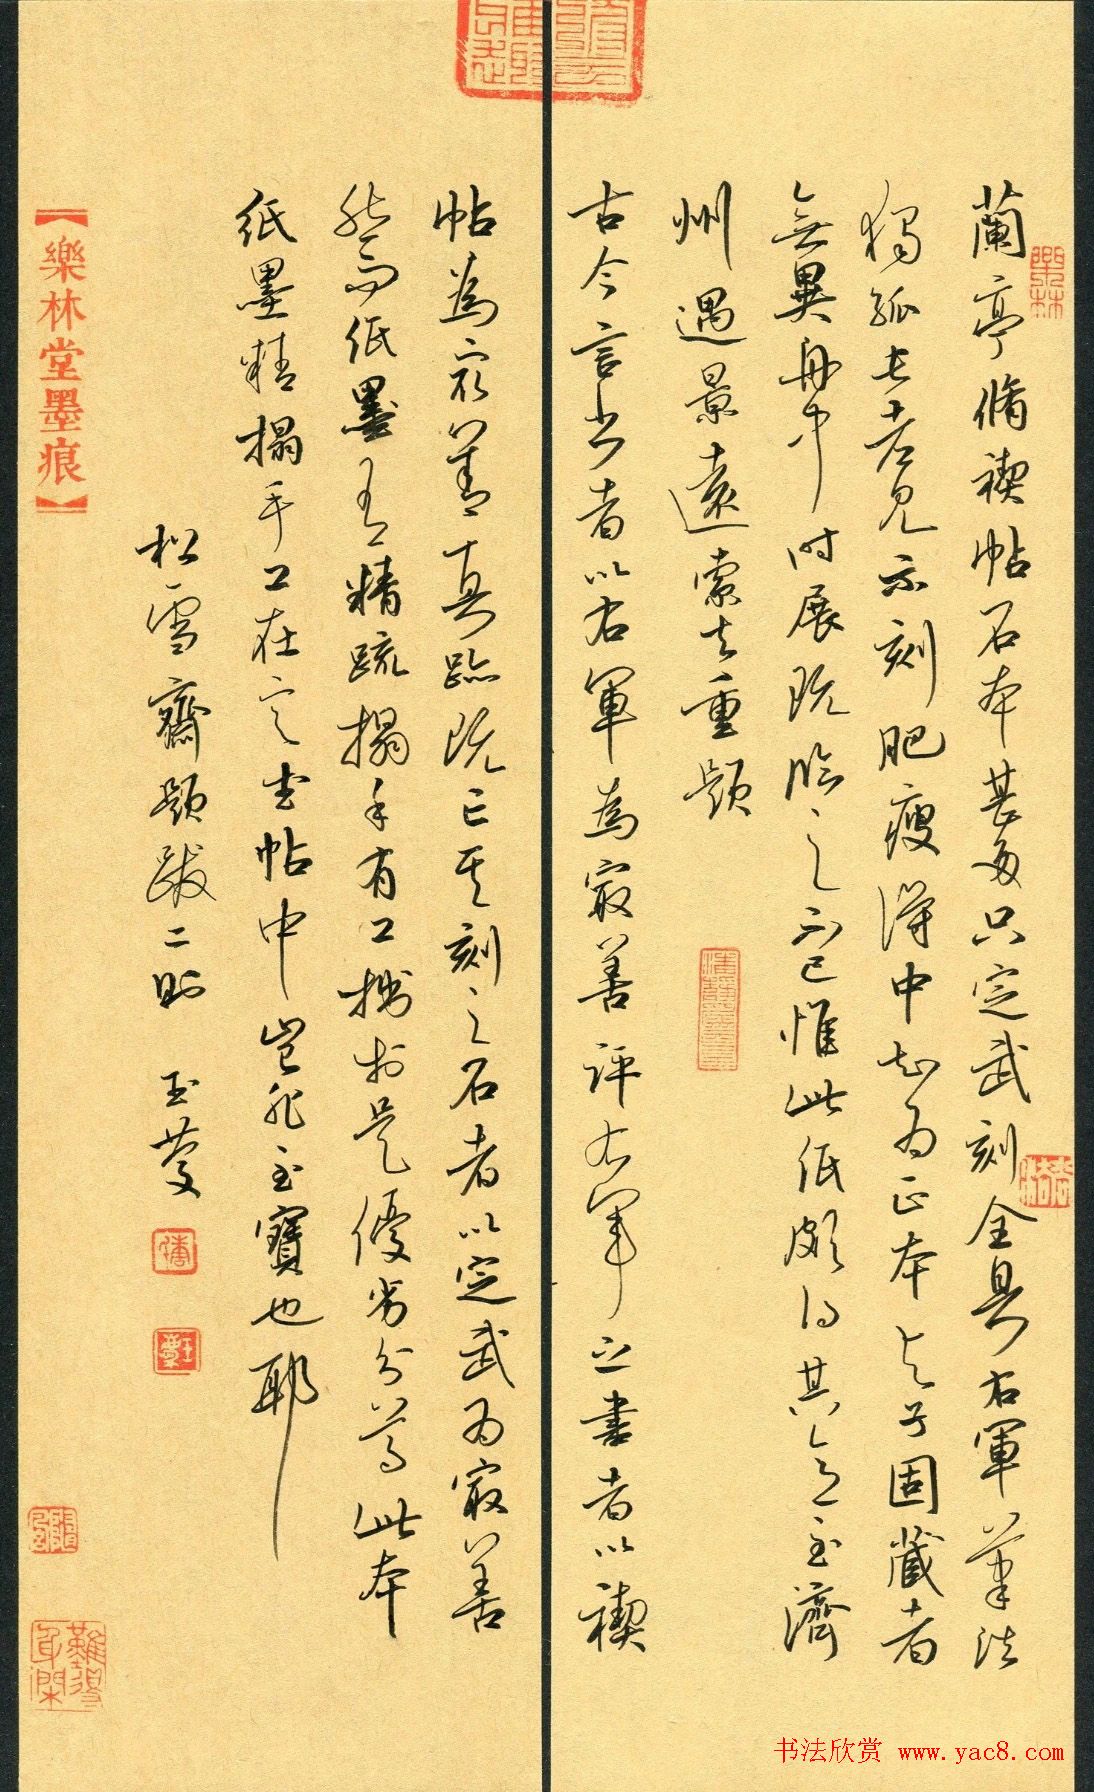 蘭亭脩禊帖石本甚多只定武刻全具右軍筆法
獨孤長老見示刻肥瘦得中知為正本与子固藏者
無異舟中時展玩臨之不已惟此紙頗得其意至濟
州遇景遠索去重題
古今言書者以右軍為最善評右軍之書者以禊
帖為最善真跡既亡其刻之石者以定武為最善
然而紙墨有精疏搨手有工拙於是優劣分焉此本
紙墨精搨手工在定武帖中豈非至寶也耶
松雪齋題跋二則 玉夔
【樂林堂墨痕】
樂林
難得身閑
书法欣赏 www.yac8.com